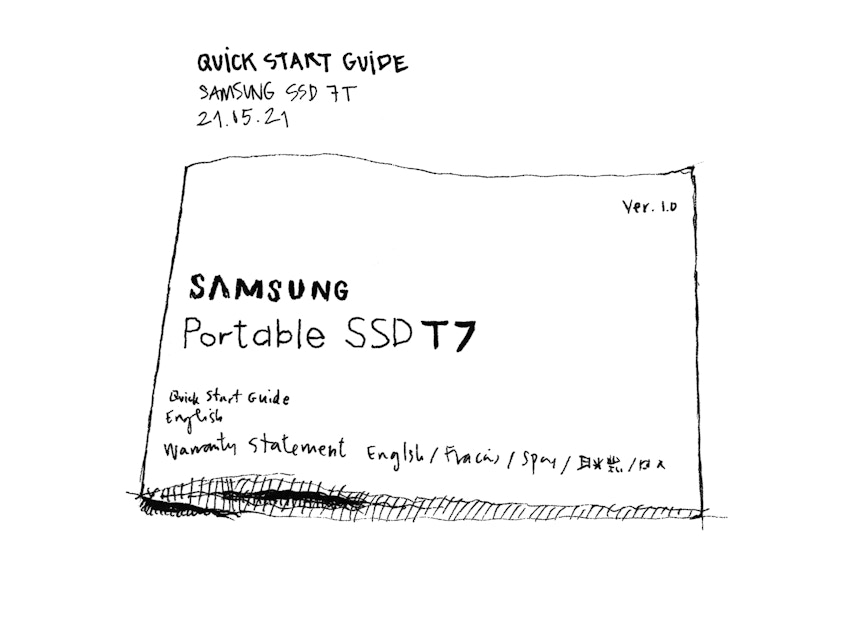 QUiCK START GUiDE
SAMSUNG SSD 7T
21.15.21
Ver. 1.0
SAMSUNG
Portable SSD T7
Quick Start Guide
English
Warranty Statement Englsh / / Spay /